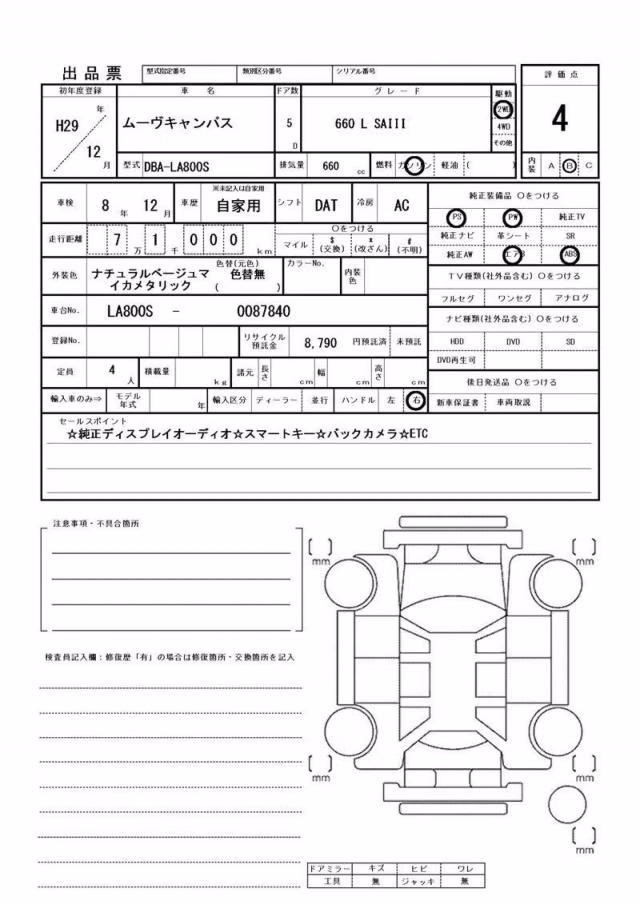 出品票 型式指定番号 類別区分番号 シリアル番号
評価点
初年度登録 車名 ドア数 グレード 駆動
H29 年 ムーヴキャンバス 5 D 660 L SAIII 2WD 4
12 月 4WD
その他
型式 DBA-LA800S 排気量 660 cc 燃料 ガソリン 軽油 ( ) 内装 A B C
車検 8 年 12 月 車歴 ※未記入は自家用 自家用 シフト DAT 冷房 AC
純正装備品 ○をつける
PS PW 純正TV
走行距離 7 万 1 千 0 0 0 km ○をつける
マイル $ (交換) * (改ざん) # (不明)
純正ナビ 革シート SR
純正AW エアB ABS
外装色 ナチュラルベージュマイカメタリック 色替(元色) 色替無 ( ) カラーNo. 内装色
TV種類(社外品含む) ○をつける
フルセグ ワンセグ アナログ
車台No. LA800S - 0087840
ナビ種類(社外品含む) ○をつける
登録No. リサイクル預託金 8,790 円預託済 未預託
HDD DVD SD
DVD再生可
定員 4 人 積載量 kg 諸元 長さ cm 幅 cm 高さ cm
後日発送品 ○をつける
輸入車のみ⇒ モデル年式 年 輸入区分 ディーラー 並行 ハンドル 左 右
新車保証書 車両取説
セールスポイント
☆純正ディスプレイオーディオ☆スマートキー☆バックカメラ☆ETC
注意事項・不具合箇所
[ ] mm
[ ] mm
検査員記入欄：修復歴「有」の場合は修復箇所・交換箇所を記入
[ ] mm
[ ] mm
[ ] mm
ドアミラー キズ ヒビ ワレ
工具 無 ジャッキ 無